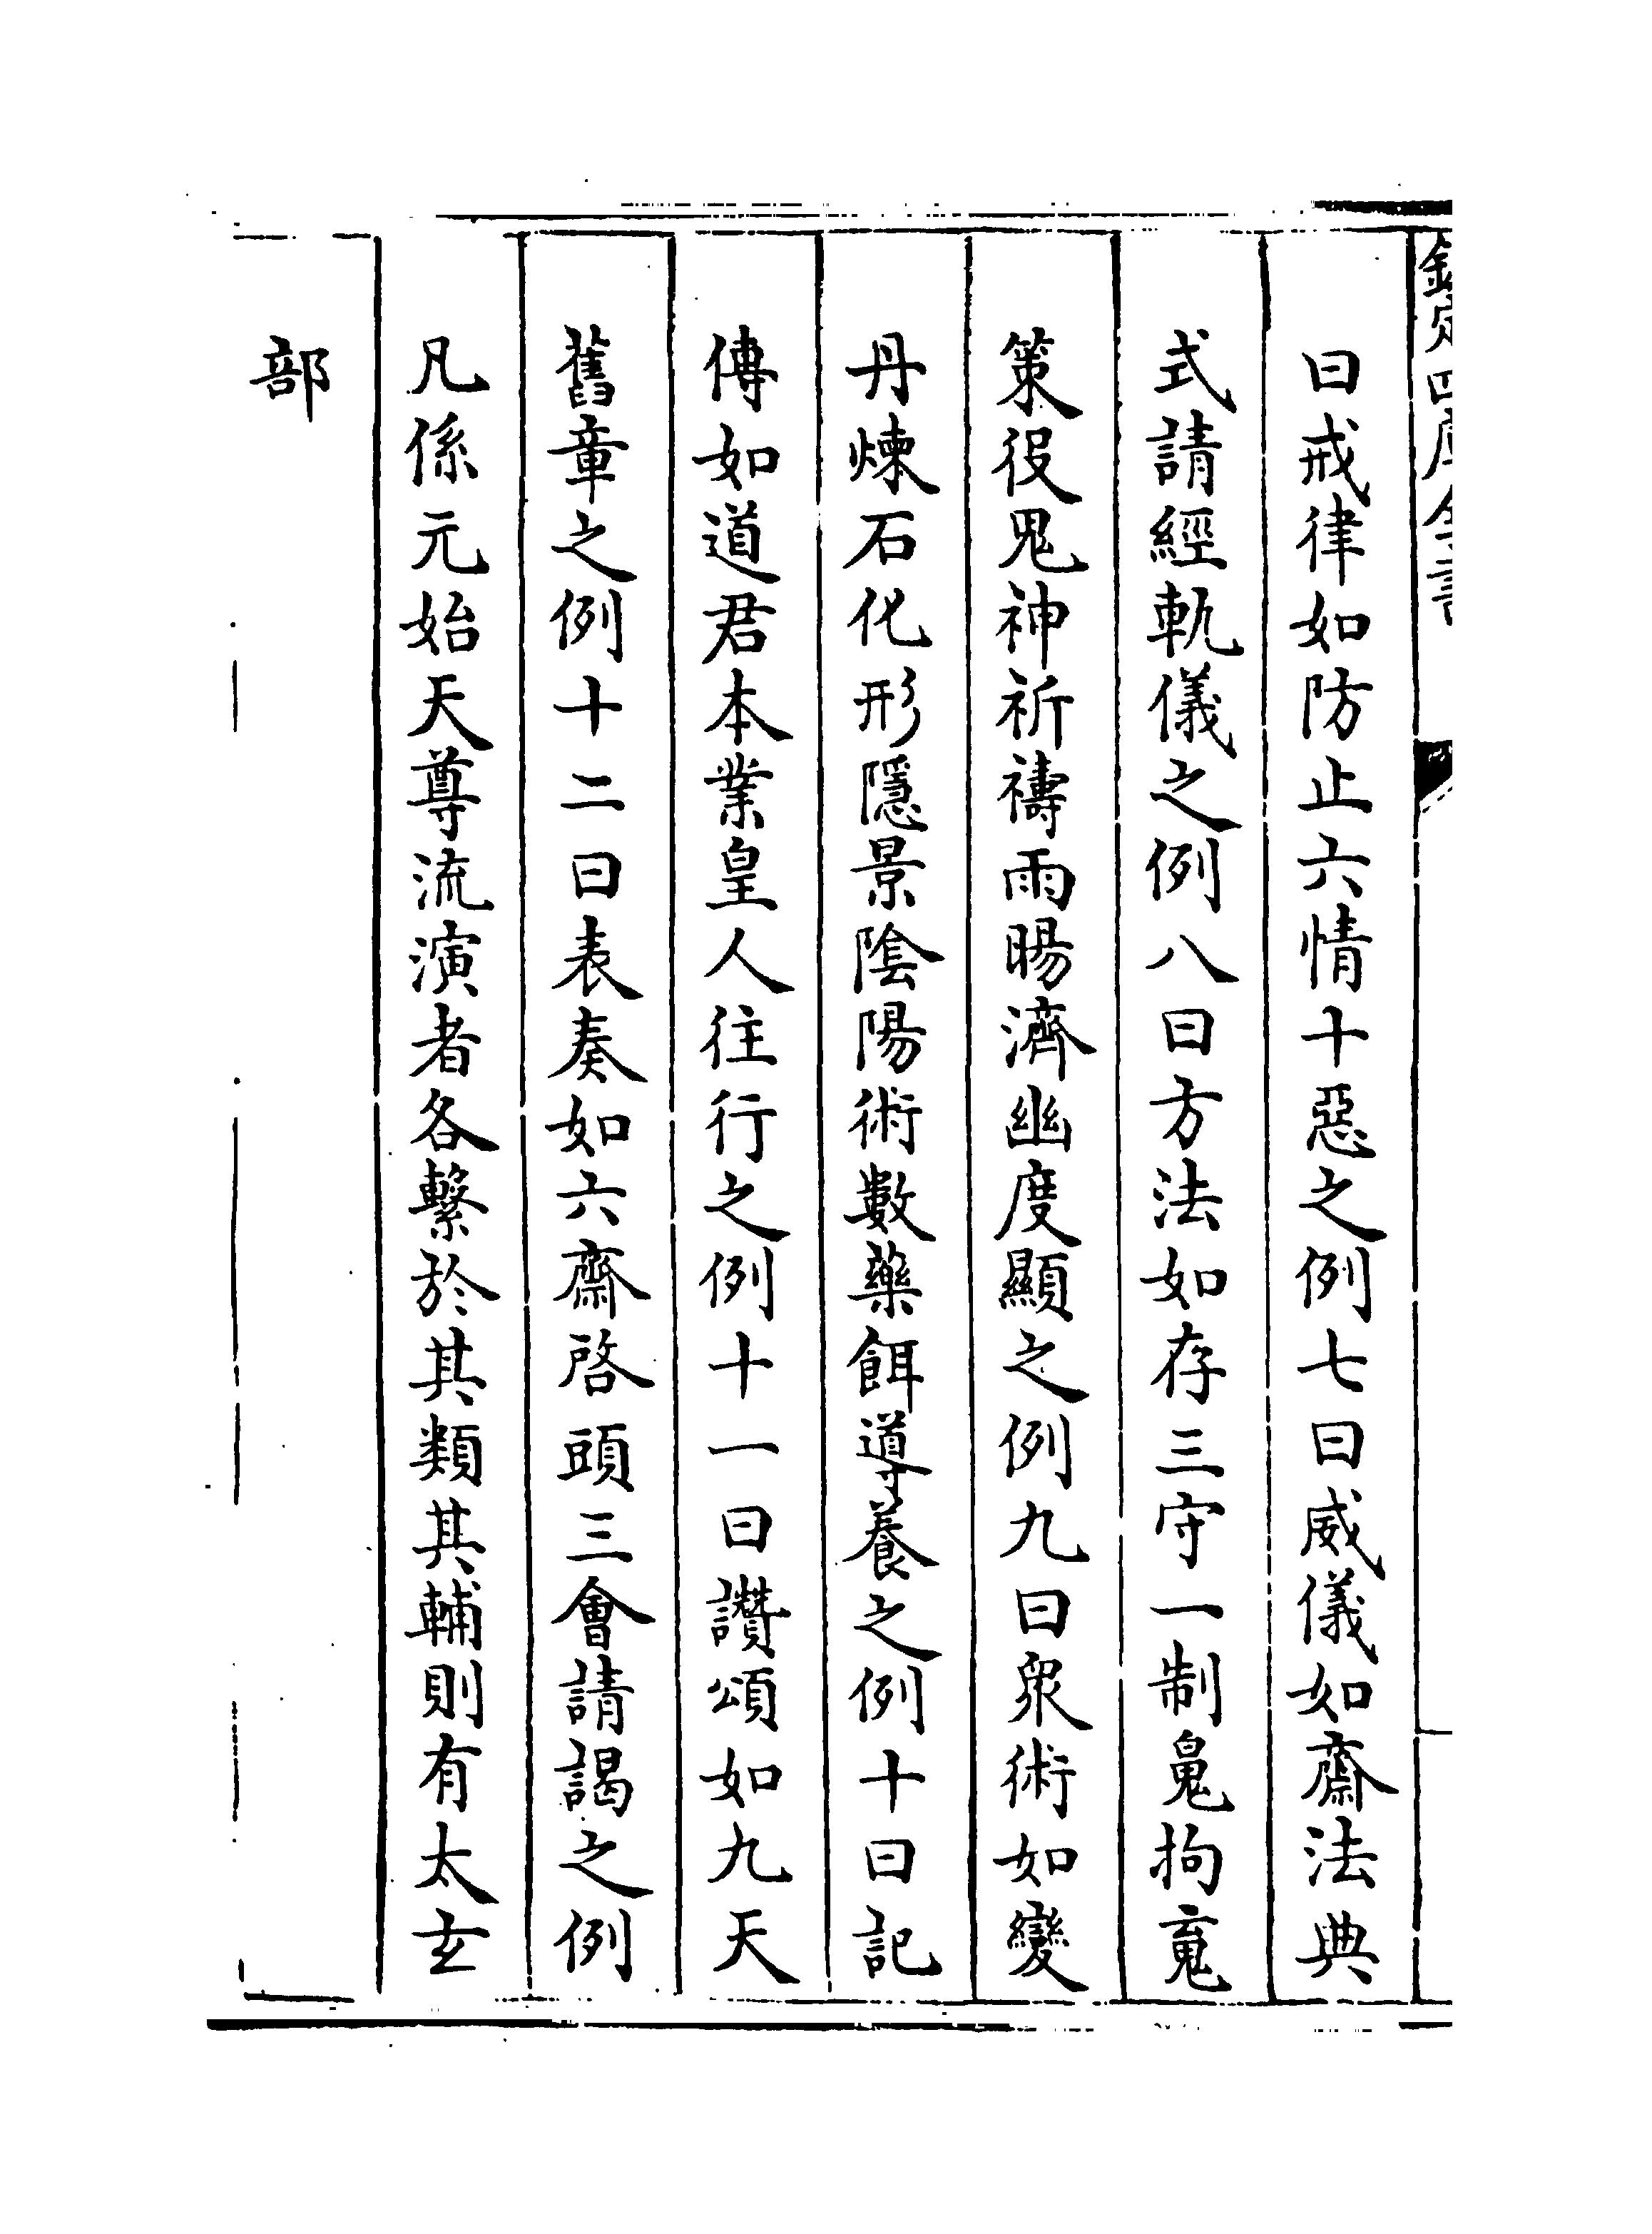 欽定四庫全書
曰戒律如防止六情十惡之例七曰威儀如齋法典
式請經軌儀之例八曰方法如存三守一制魄拘䰟
策役鬼神祈禱雨暘濟幽度顯之例九曰衆術如變
丹煉石化形隱景陰陽術數藥餌導養之例十曰記
傳如道君本業皇人往行之例十一曰讚頌如九天
舊章之例十二曰表奏如六齋啓頭三會請謁之例
凡係元始天尊流演者各繫於其類其輔則有太玄
部